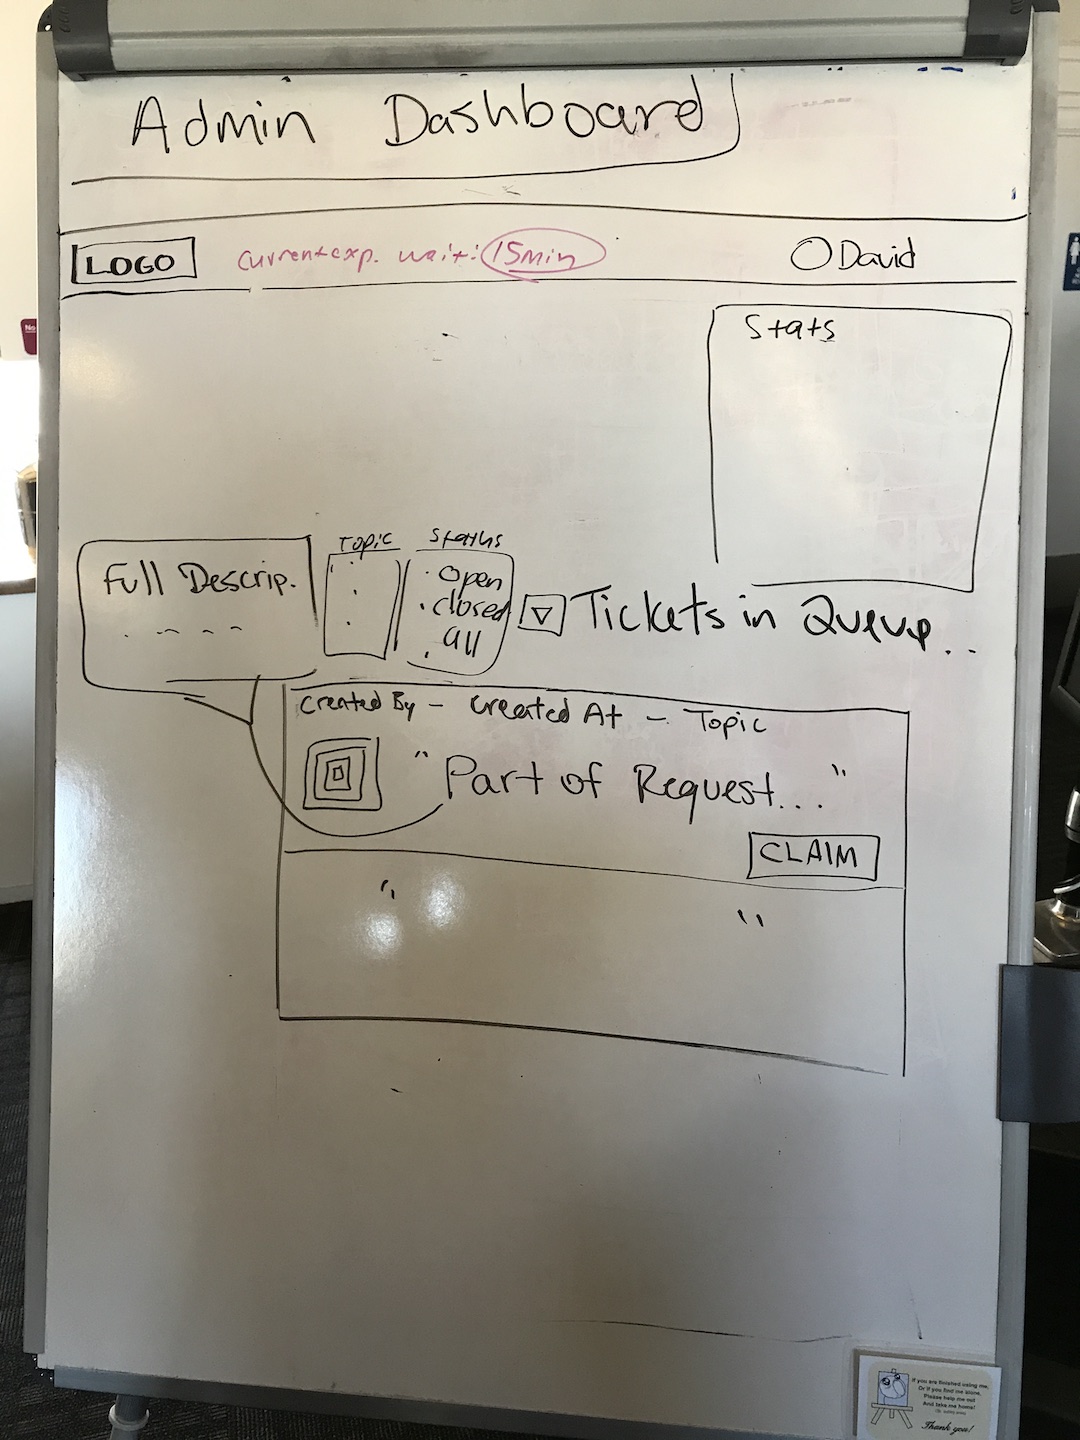 Admin Dashboard
LOGO
current exp. wait: 15min
David
Stats
Topic
Status
Full Descrip.
· open
· closed
· all
Tickets in Queue..
Created By - Created At - Topic
"Part of Request..."
CLAIM
" "
If you are finished using me,
Or if you find me alone,
Please help me out
And take me home!
Thank you!
No